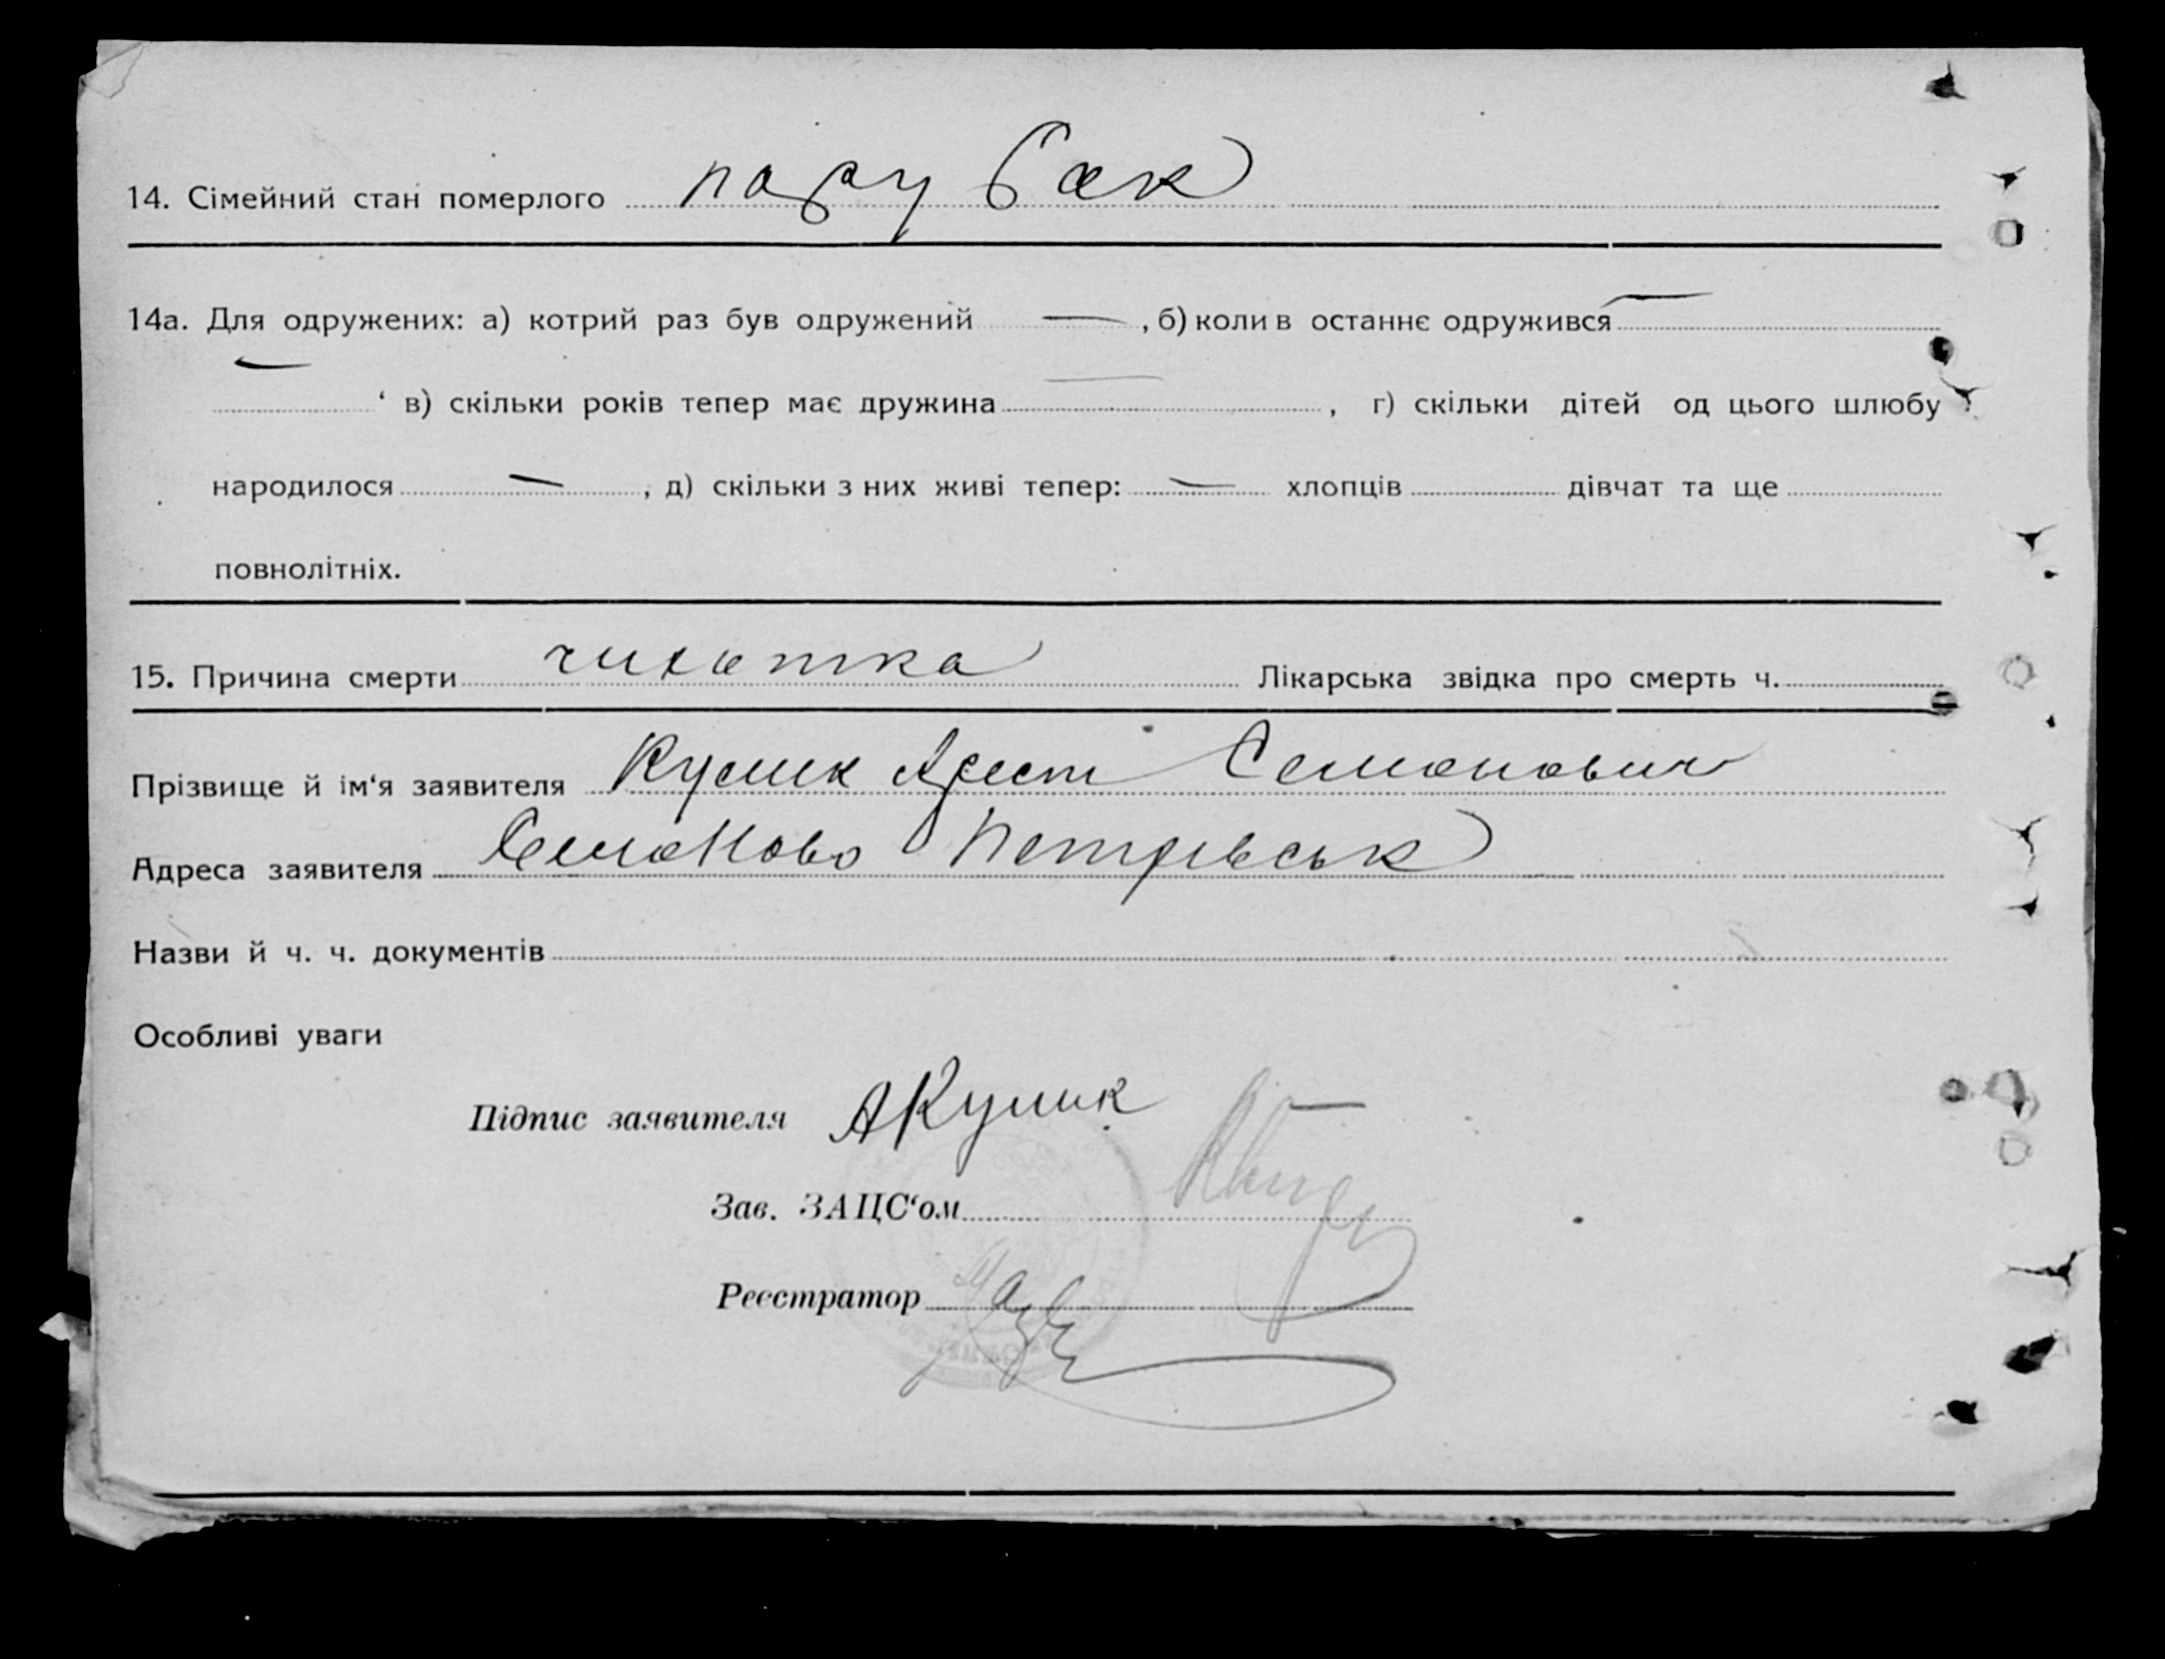 14. Сімейний стан померлого парубак
14а. Для одружених: а) котрий раз був одружений —, б) коли в останнє одружився —
— ‘ в) скільки років тепер має дружина —, г) скільки дітей од цього шлюбу
народилося —, д) скільки з них живі тепер: — хлопців дівчат та ще
повнолітніх.
15. Причина смерти чихотка Лікарська звідка про смерть ч.
Прізвище й ім‘я заявителя Кулик Арест Семонович
Адреса заявителя Семоново Петрівськ
Назви й ч. ч. документів
Особливі уваги
Підпис заявителя АКулик
Зав. ЗАЦС‘ом
Реєстратор